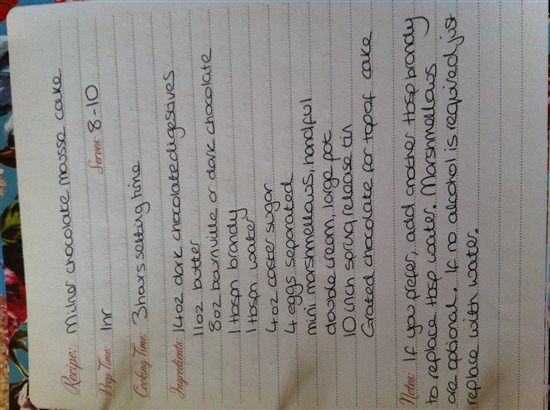 Recipe: Milner chocolate mousse cake
Prep Time: 1hr Serves: 8-10
Cooking Time: 3 hours setting time
Ingredients: 14oz dark chocolate digestives
11oz butter
8oz bournville or dark chocolate
1 tbspn brandy
1 tbspn water
4oz caster sugar
4 eggs separated
mini marshmellows, handful
double cream, large pot
10 inch spring release tin
Grated chocolate for top of cake
Notes: If you prefer, add another tbsp brandy
to replace tbsp water. Marshmellows
are optional. If no alcohol is required just
replace with water.